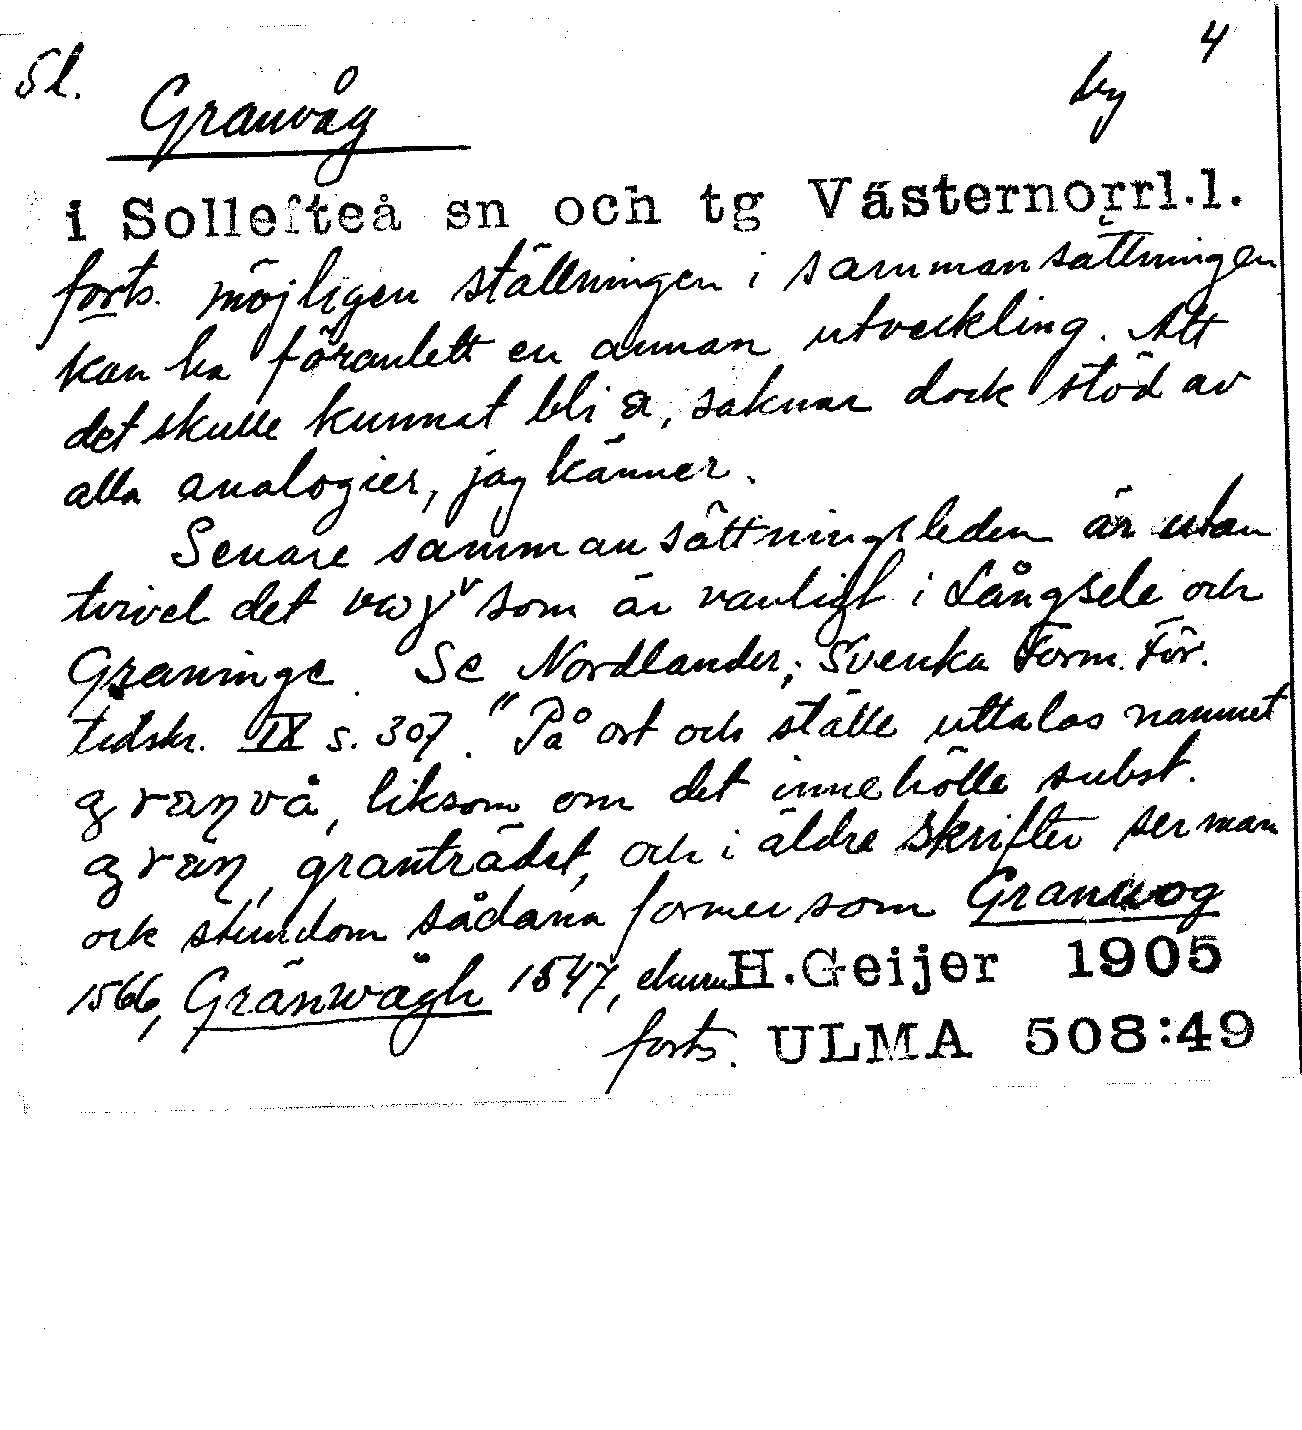 Sl. Granvåg by 4
i Sollefteå sn och tg Västernorrl.l.
forts. möjligen ställningen i sammansättningen
kan ha föranlett en annan utveckling. Att
det skulle kunnat bli a, saknar dock stöd av
alla analogier, jag känner.
Senare sammansättningsleden är utan
tvivel det som är vanligt i Långsele och
Graninge. Se Nordlander, Svenska Form. För.
tidskr. IX s. 307. "På ort och ställe uttalas namnet
granvå, liksom om det innehölle subst.
grän, granträdet, och i äldre skrifter ser man
ock stundom sådana former som Granwog
1566, Gränwågh 1547, ehuru
H. Geijer 1905
forts. ULMA 508:49